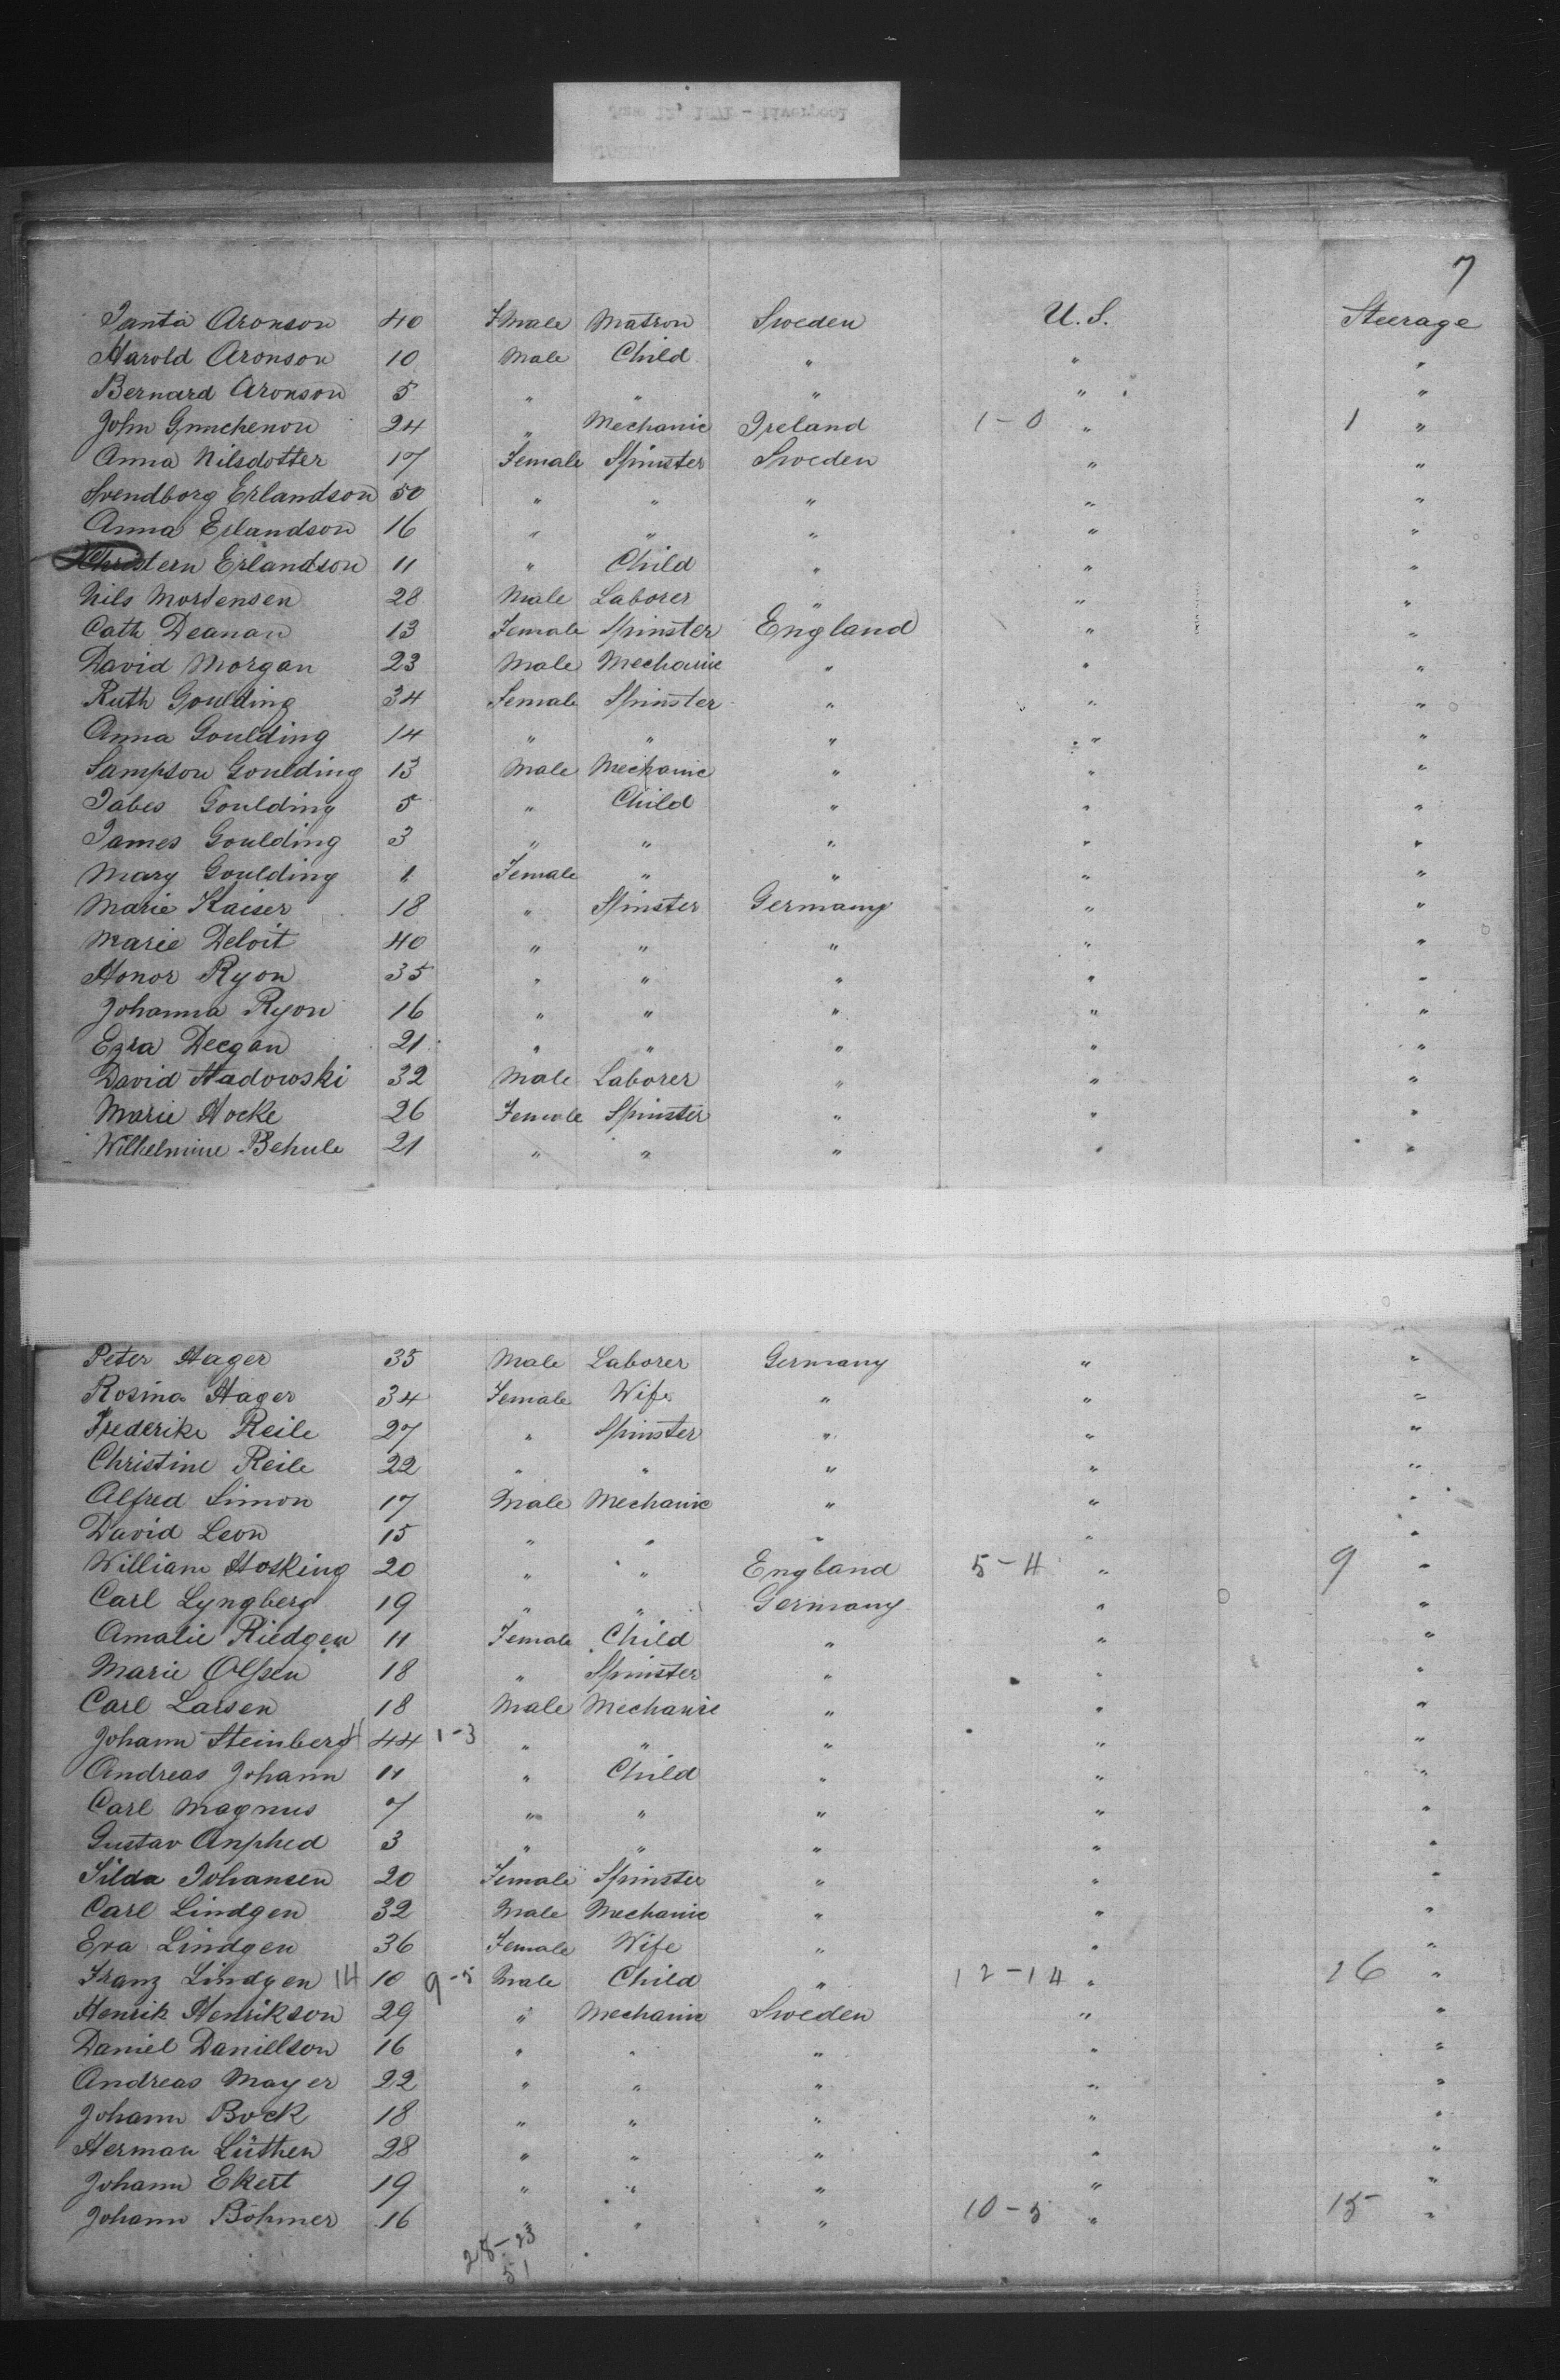 7
Janta Aronson 40 Fmale Matron Sweden U.S. Steerage
Harold Aronson 10 Male Child " " "
Bernard Aronson 5 " " " " "
John Gunchenon 24 " Mechanic Ireland 1-0 " 1 "
Anna Nilsdotter 17 Female Spinster Sweden " "
Svendborg Erlandson 50 " " " " "
Anna Erlandson 16 " " " " "
Christern Erlandson 11 " Child " " "
Nils Mortensen 28 Male Laborer " " "
Cath Deanan 13 Female Spinster England " "
David Morgan 23 Male Mechanic " " "
Ruth Goulding 34 Female Spinster " " "
Anna Goulding 14 " " " " "
Sampson Goulding 13 Male Mechanic " " "
Jabes Goulding 5 " Child " " "
James Goulding 3 " " " " "
Mary Goulding 1 Female " " " "
Marie Kaiser 18 " Spinster Germany " "
Marie Deloit 40 " " " " "
Honor Ryon 35 " " " " "
Johanna Ryon 16 " " " " "
Ezra Deegan 21 " " " " "
David Hadowski 32 Male Laborer " " "
Marie Hocke 26 Female Spinster " " "
Wilhelmine Behule 21 " " " " "
Peter Hager 35 Male Laborer Germany " "
Rosina Hager 34 Female Wife " " "
Frederike Reile 27 " Spinster " " "
Christine Reile 22 " " " " "
Alfred Simon 17 Male Mechanic " " "
David Leon 15 " " " " "
William Hosking 20 " " England 5-4 " 9 "
Carl Lyngberg 19 " " Germany " "
Amalie Riedgen 11 Female Child " " "
Marie Olssen 18 " Spinster " " "
Carl Larsen 18 Male Mechanic " " "
Johann Steinberg 44 1-3 " " " " "
Andreas Johann 11 " Child " " "
Carl Magnus 7 " " " " "
Gustav Anphed 3 " " " " "
Silda Johansen 20 Female Spinster " " "
Carl Lindgen 32 Male Mechanic " " "
Eva Lindgen 36 Female Wife " " "
Franz Lindgen 14 10 9-5 Male Child " 12-14 " 26 "
Henrik Henrikson 29 " Mechanic Sweden " "
Daniel Daniellson 16 " " " " "
Andreas Mayer 22 " " " " "
Johann Bock 18 " " " " "
Herman Lüthen 28 " " " " "
Johann Ekert 19 " " " " "
Johann Böhmer 16 " " " 10-5 " 15 "
28-23
51